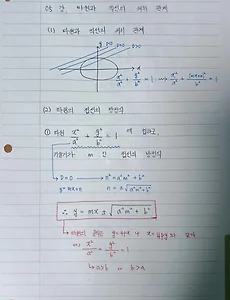 05 강 타원과 직선의 위치 관계
(1) 타원과 직선의 위치 관계
D<0 D=0 D>0
x²/a² + y²/b² = 1 → x²/a² + (mx+n)²/b² = 1
(2) 타원의 접선의 방정식
① 타원 x²/a² + y²/b² = 1 에 접하고
기울기가 m 인 접선의 방정식
D=0 → n² = a²m² + b²
y=mx+n n = ±√(a²m²+b²)
∴ y = mx ± √(a²m² + b²)
x²/a² + y²/b² = 1
a>b or b>a